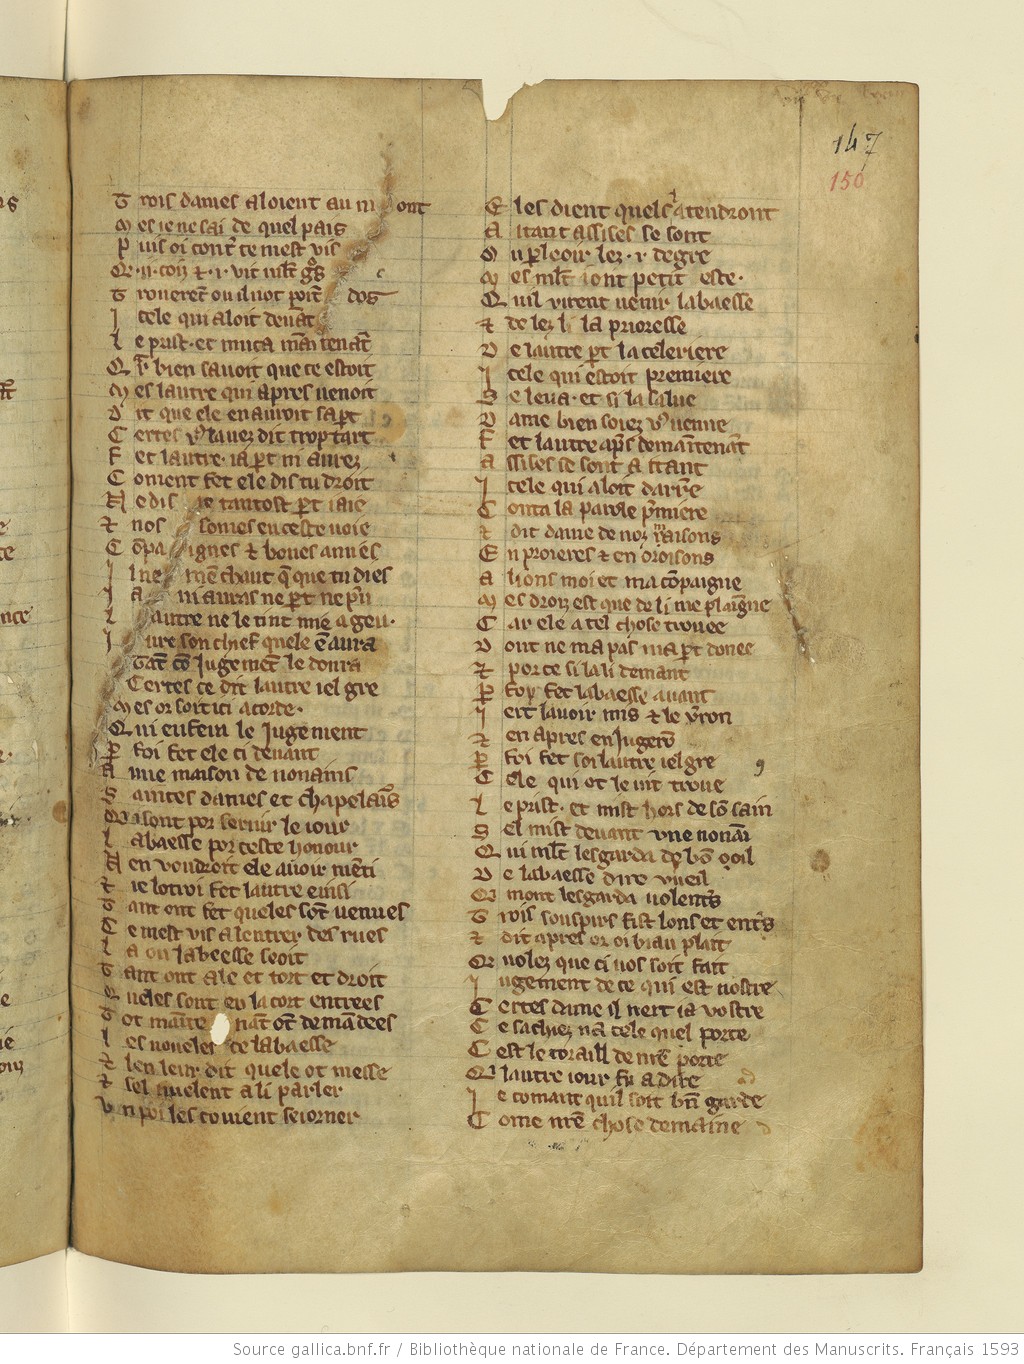 147
150
T rois dames aloient au m ont
M es ie ne sai de quel pais
P uis oi cont̃ ce mest vis
Q .ii. coiƷ ⁊ .i. vit ml̃t gͣs
T roverẽt ou il uot poĩt dos
I cele qui aloit deuãt
L e prist. et muca mãĩtenãt
Q r̃ bien sauoit que ce estoit
M es lautre qui apres uenoit
D it que ele en auroit sa pꝛt
C ertes vͦ lauez dit trop tart
F et lautre. ia pꝛt ni aurez
C oment fet ele dis tu droit
N e dis ie tantost pꝛt iaie
⁊ nos somes en ceste uoie
C õpaignes ⁊ bones amies
I l ne mẽ chaut q̃ que tu dies
I a ni auras ne pꝛt ne pͥu
L autre ne le tint mie a geu.
I ure son chief quele ẽ aura
Tãt cõ Jugemẽt le donra
Certes ce dit lautre iel gre
M es or soit ici acorde.
Q ui en fera le Jugement
P foi fet ele ci deuant
A une maison de nonains
S aintes dames et chapelaĩs
Q ui sont por seruir le iour
L abaesse por ceste honour
N en voudroit ele auoir mẽti
⁊ ie lotroi fet lautre einsi
T ant ont fet queles sõt uenues
C e mest vis a lentrer des rues
L a ou labeesse seoit
T ant ont ale et tort et droit
Q ueles sont en la cort entrees
T ot maĩte nãt õt demãdees
L es noueles de labaesse
⁊ len leur dit quele ot messe
⁊ sel uuelent a li parler
V n poi les couient seiorner
E les dient quels atendront
A itant assises se sont
O u pꝛleoir lez .i. degre
M es ml̃t i ont petit este.
Q uil virent uenir labaesse
⁊ de lez li la prioresse
D e lautre pꝛt la celeriere
I cele qui estoit premiere
S e leua. et si la salue
D ame bien soiez vͦ uenue
F et lautre apͥs demaĩtenãt
A ssises se sont a itant
I cele qui aloit darr̃e
C onta la parole pͥmiere
⁊ dit dame de noz maisons
E n proieres ⁊ en oroisons
A lions moi et ma cõpaigne
M es droiz est que de li me plaĩgne
C ar ele a tel chose trouee
D ont ne ma pas ma pꝛt donee
⁊ por ce si la li demant
P foy fet labaesse auant
I ert lauoir mis ⁊ le v̾ron
⁊ en apres en Jugerõ
P foi fet soi lautre iel gre
C ele qui ot le vit troue
L e prist. et mist hors de sõ sain
S el mist deuant vne nonaĩ
Q ui ml̃t lesgarda de bõ oil
D e labaesse dire vueil
Q mont lesgarda uolent̾s
T rois souspirs fist lons et ent̾s
⁊ dit apres or oi biau plait
Q uolez que ci vos soit fait
I ugement de ce qui est nostre
C ertes dame il nert ia vostre
C e sachiez nã cele quel porte
C est le toraill de nr̃e porte
Q lautre iour fu adire
I e comant quil soit bñ garde
C ome nr̃e chose demaine
Source gallica.bnf.fr / Bibliothèque nationale de France. Département des Manuscrits. Français 1593